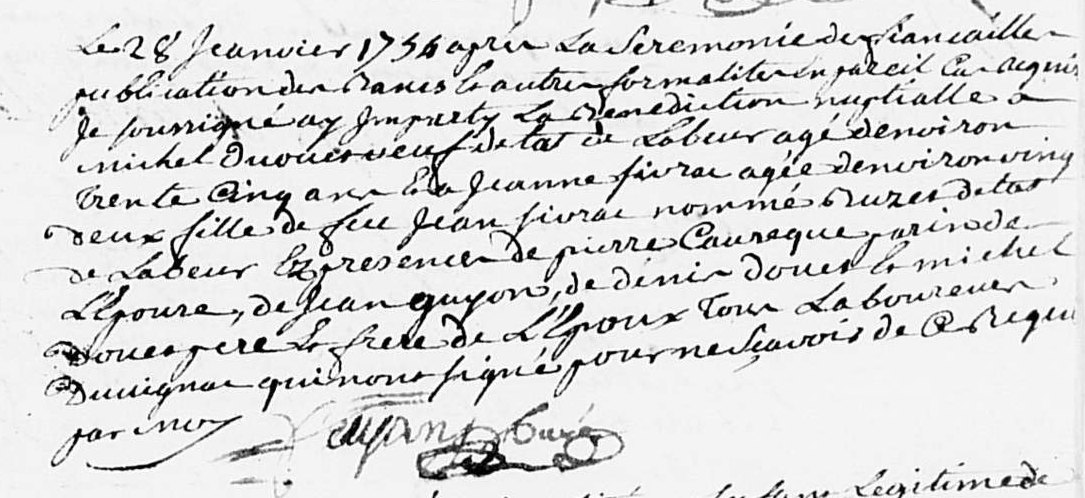 Le 28 Jeanvier 1754 apres La Seremonie de fiancailles
publication des Bancs et autres formalites en pareil Cas Requis
Je soussigné ay Imparty La Benediction nuptialle a
Michel douet veuf detat de Labeur agé denviron
trente Cinq ans et a Jeanne sivrac agée denviron vingt
deux fille de feu Jean sivrac nommé Ruzet detat
de Labeur En presence de pierre Caureque parin de
L'Epouse, de Jean guyon, de dénis douet et michel
douet pere et frere de L'Epoux tous Laboureurs
Duvignac qui nont signé pour ne sçavois de Ce Requis
par moy
Curé
Legitime de